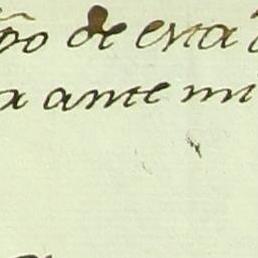 de esta
ante mi